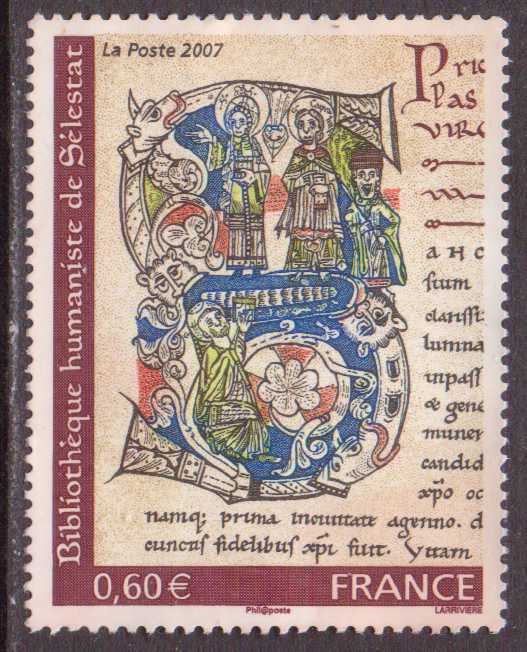 La Poste 2007
Bibliothèque humaniste de Sélestat
Pric
llas
VIRG
A H C
sium
clarissi
lumina
inpass
& gene
muner
candid
xp̄o oc
namq; prima inouitate agenno. d
cunctis fidelibus xp̄i fuit. Vttam
0,60€
FRANCE
Phil@poste
LARRIVIÈRE